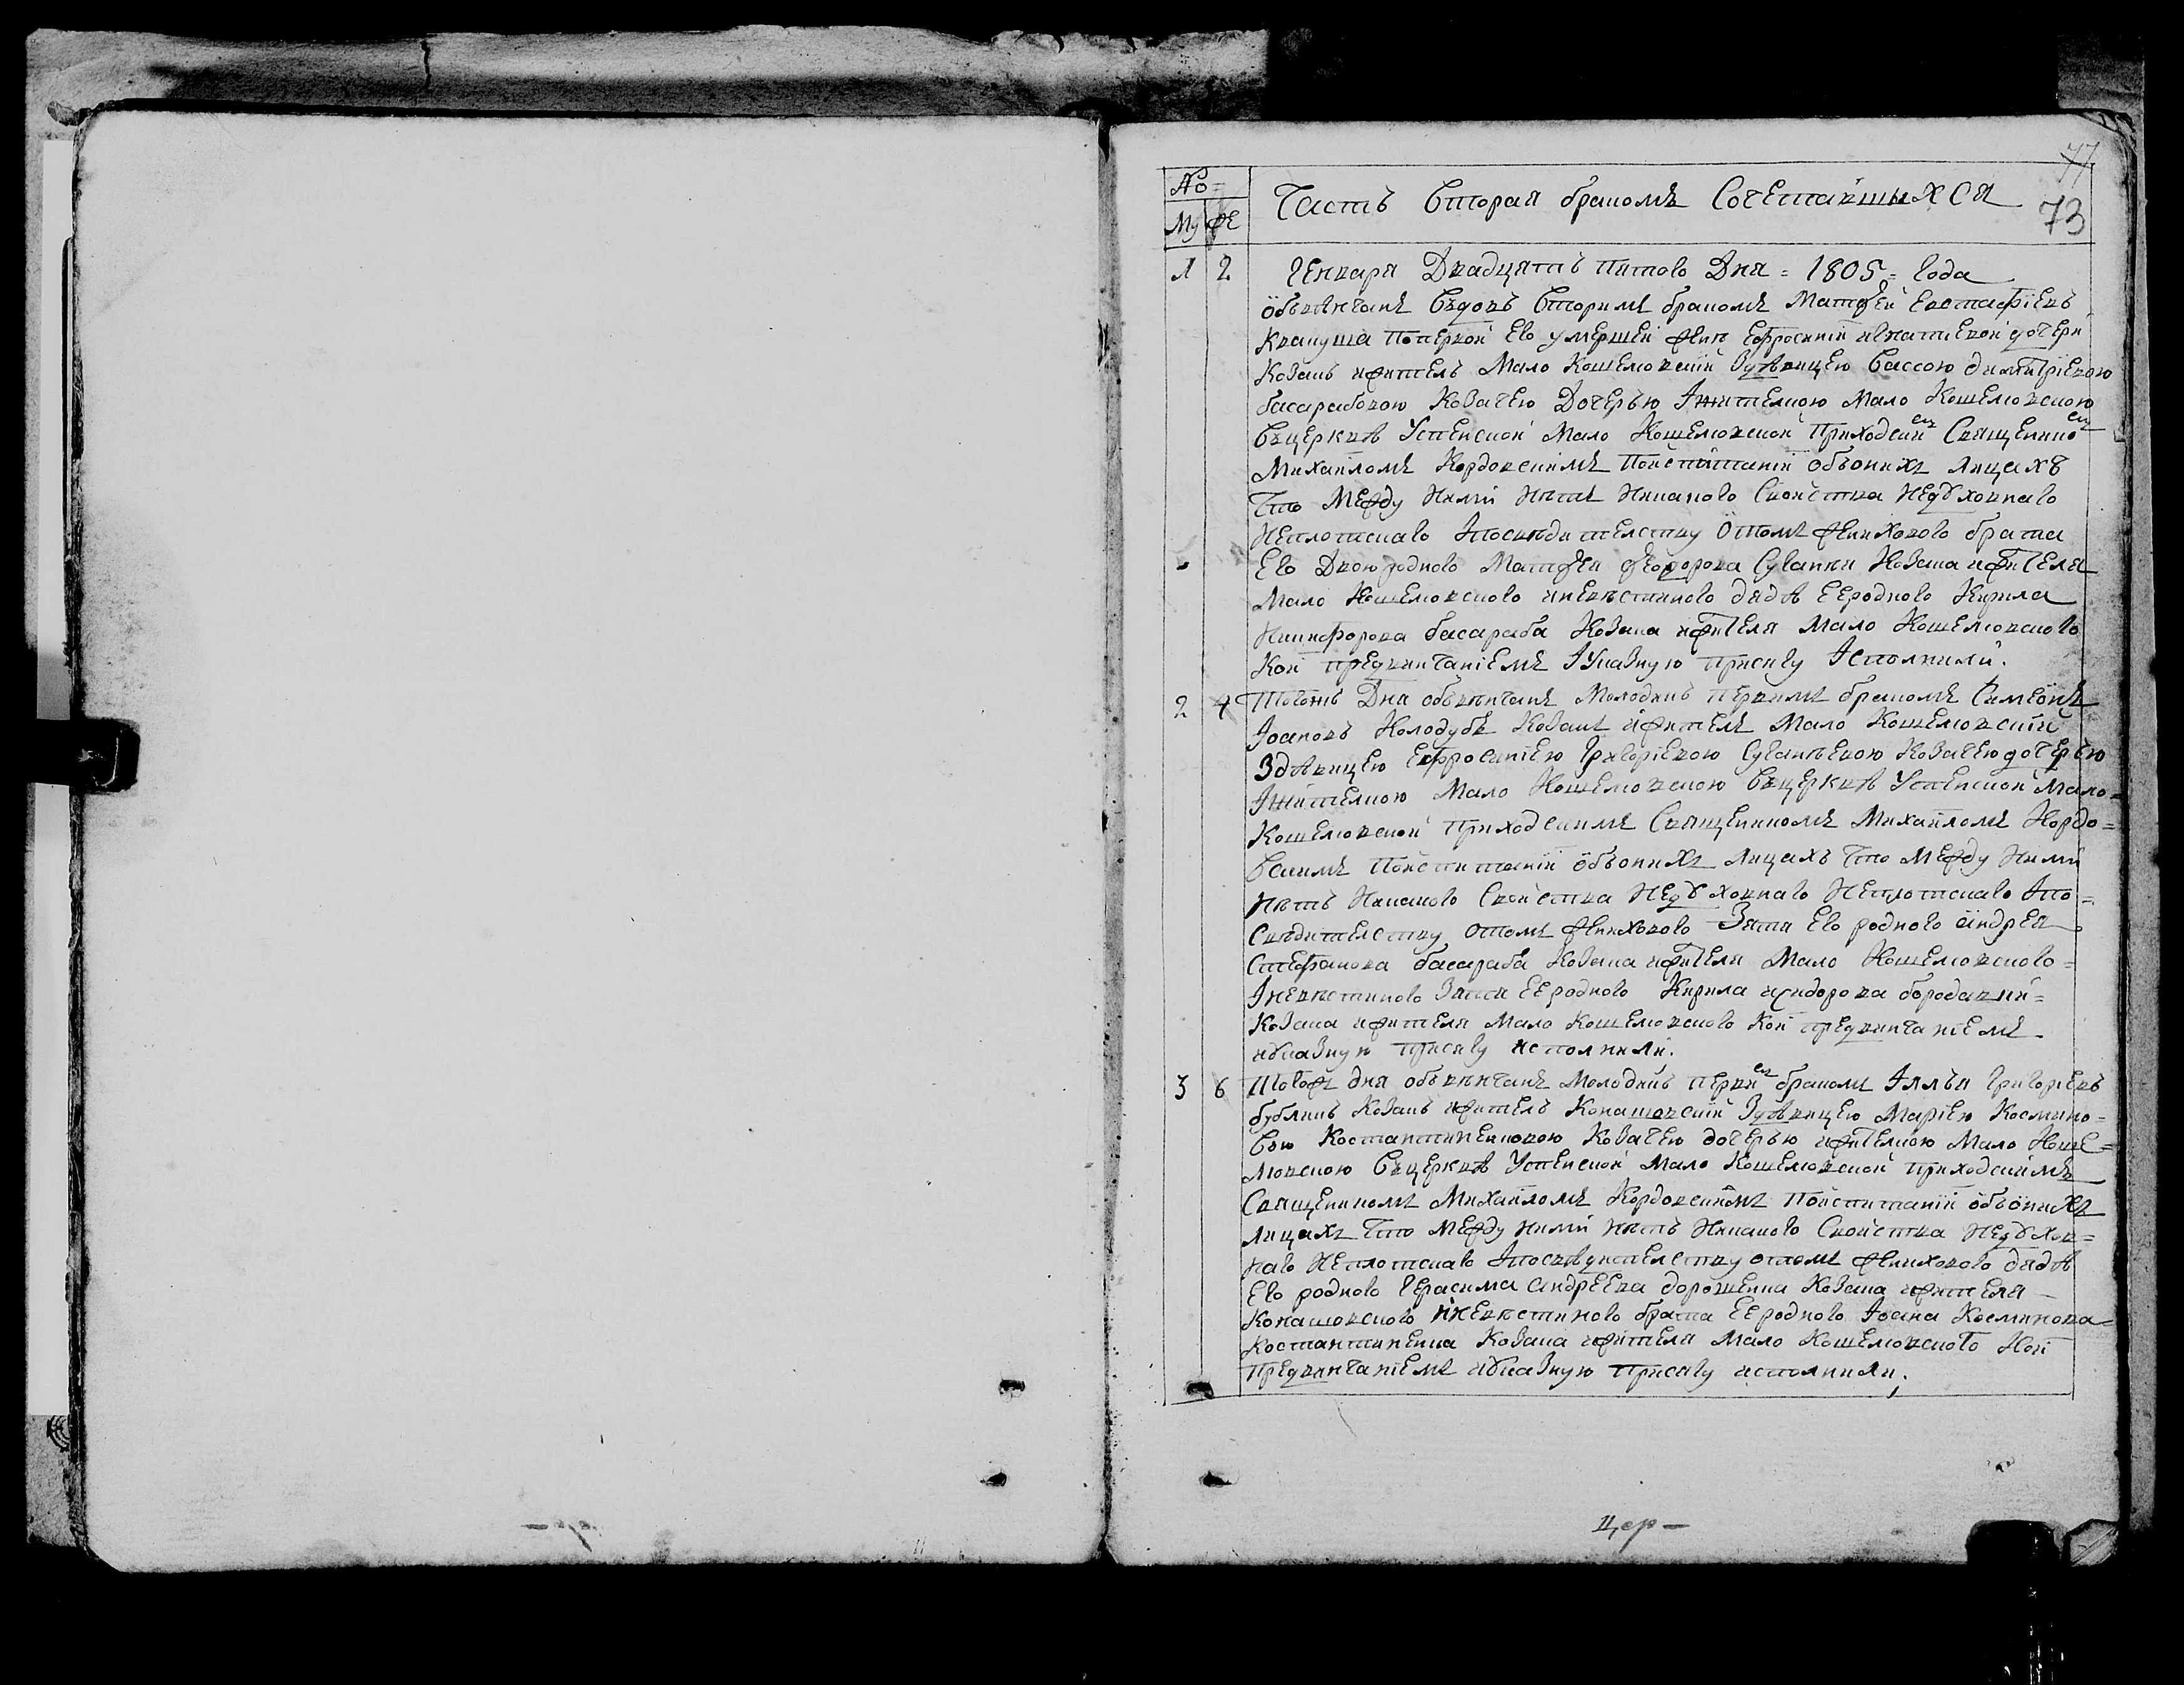 77
№
Часть Вторая бракомъ Сочетавшыхся
73
Му Же
1 2 Генваря Двадцять пятого Дня = 1805 = Года
объвѣнчанъ Въдовъ Вторимъ бракомъ Матфей Евстафіевъ
Квакуша По первой Его умершей Жин Ефросиніи игнатиевой дочери
Козакъ ижитель Мало Кошелювскій Здѣвицею Вассою димитріевою
басарабовою Козачею Дочерью Ижителкою Мало Кошелювскою
Въцерквѣ Успенской Мало Кошелювской Приходским Священико м
Михаиломъ Кордовскимъ Поиспитаніи объоних лицахъ
Что Между Ними Нѣтъ Никакого Свойства Недуховнаго
Неплотскаго Ипосвѣдителству Отомъ Женихового брата
Его Двоюродного Матфея феодорова Сукалки Козака ижителя
Мало Кошелювского иневѣстиного дядѣ Ееродного Кирила
Никифорова басараба Козака ижителя Мало Кошелювского
Кои предвинчаніемъ Іуказную присягу Исполнили.
2 4 Тогожъ Дня объвѣнчанъ Молодикъ первимъ бракомъ Симеонъ
Іоановъ Колодубъ Козакъ ижителъ Мало Кошелювскій
Здѣвицею Ефросиніею Григоріевою Козачею дочерью
Ижителкою Мало Кошелювскою Въцерквѣ Успенской Мало=
Кошелювской Приходскимъ Священикомъ Михаиломъ Кордо=
Вскимъ Поиспитаніи объоних Лицахъ Что Между Ними
Нѣтъ Никакого Свойства Недуховнаго Неплотскаго Ипо=
Свѣдителству отомъ Женихового Зятя Его родного андрея
Стефанова басараба Козака ижителя Мало Кошелювского=
Иневѣстиного Зятя Ееродного Кирила исидорова бородавки=
Козака ижителя Мало Кошелювского Кои предвинчаніемъ
иуказную присягу исполнили.
3 6 Тогож дня объвѣнчанъ Молодикъ перви м бракомъ Іллъя Григоріевъ
бубликъ Козакъ ижитель Конашовскій Здѣвицею Маріею Космино=
Вою Костантиненковою Козачею дочерью ижителкою Мало Коше=
лювскою Въцерквѣ Успенской Мало Кошелювской приходскимъ
Священикомъ Михаиломъ Кордовскимъ Поиспитаніи объонихъ
лицахъ Что Между ними нѣтъ Никакого Свойства Недухов=
наго Неплотскаго Ипосвѣдителству отомъ Женихового дядѣ
Его родного Герасима андреева дорошенка Козака ижителя
Конашовского иневѣстиного брата Ееродного Іоана Косминова
Костантиненка Козака ижителя Мало Кошелювского Кои
предвинчаніемъ иуказную присягу исполнили.
Цер—